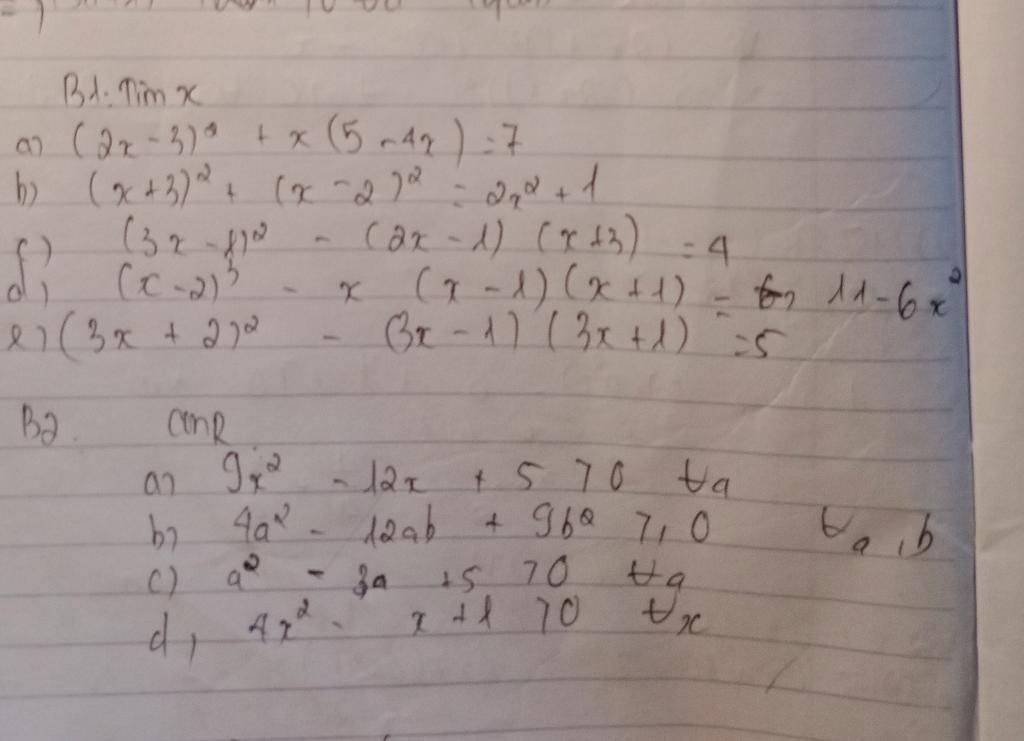 B1: Tìm x
a) (2x - 3)² + x (5 - 4x) = 7
b) (x + 3)² + (x - 2)² = 2x² + 1
c) (3x - 1)² - (2x - 1) (x + 3) = 4
d) (x - 2)³ - x (x - 1) (x + 1) = 11 - 6x²
e) (3x + 2)² - (3x - 1) (3x + 1) = 5
B2. CmR
a) 9x² - 12x + 5 > 0 ∀a
b) 4a² - 12ab + 9b² ≥ 0 ∀a, b
c) a² - 3a + 5 > 0 ∀a
d, 4x² - x + 1 > 0 ∀x